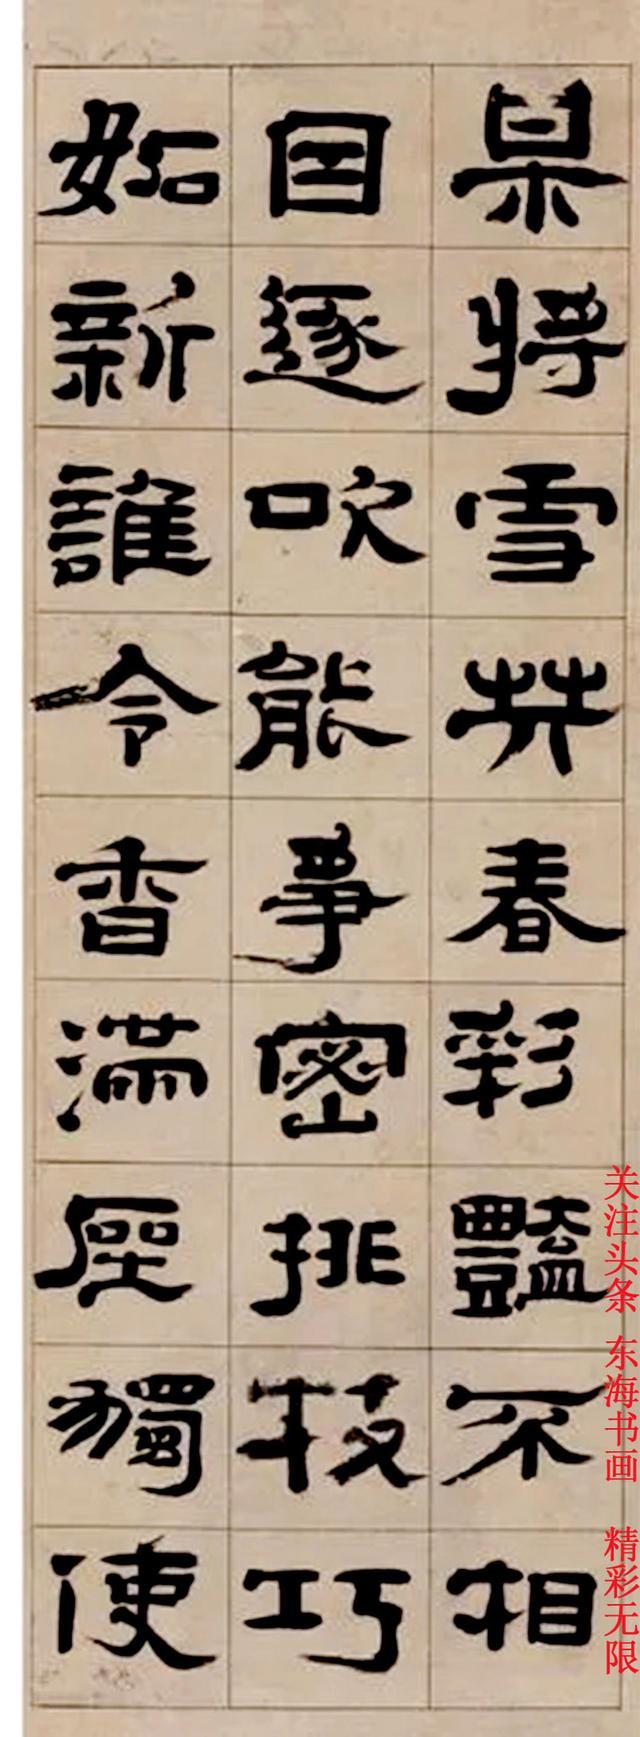 呆將雪共春彩豔不相
因逐吹能爭密排枝巧
妬新誰令香滿座獨使
关注头条 东海书画 精彩无限